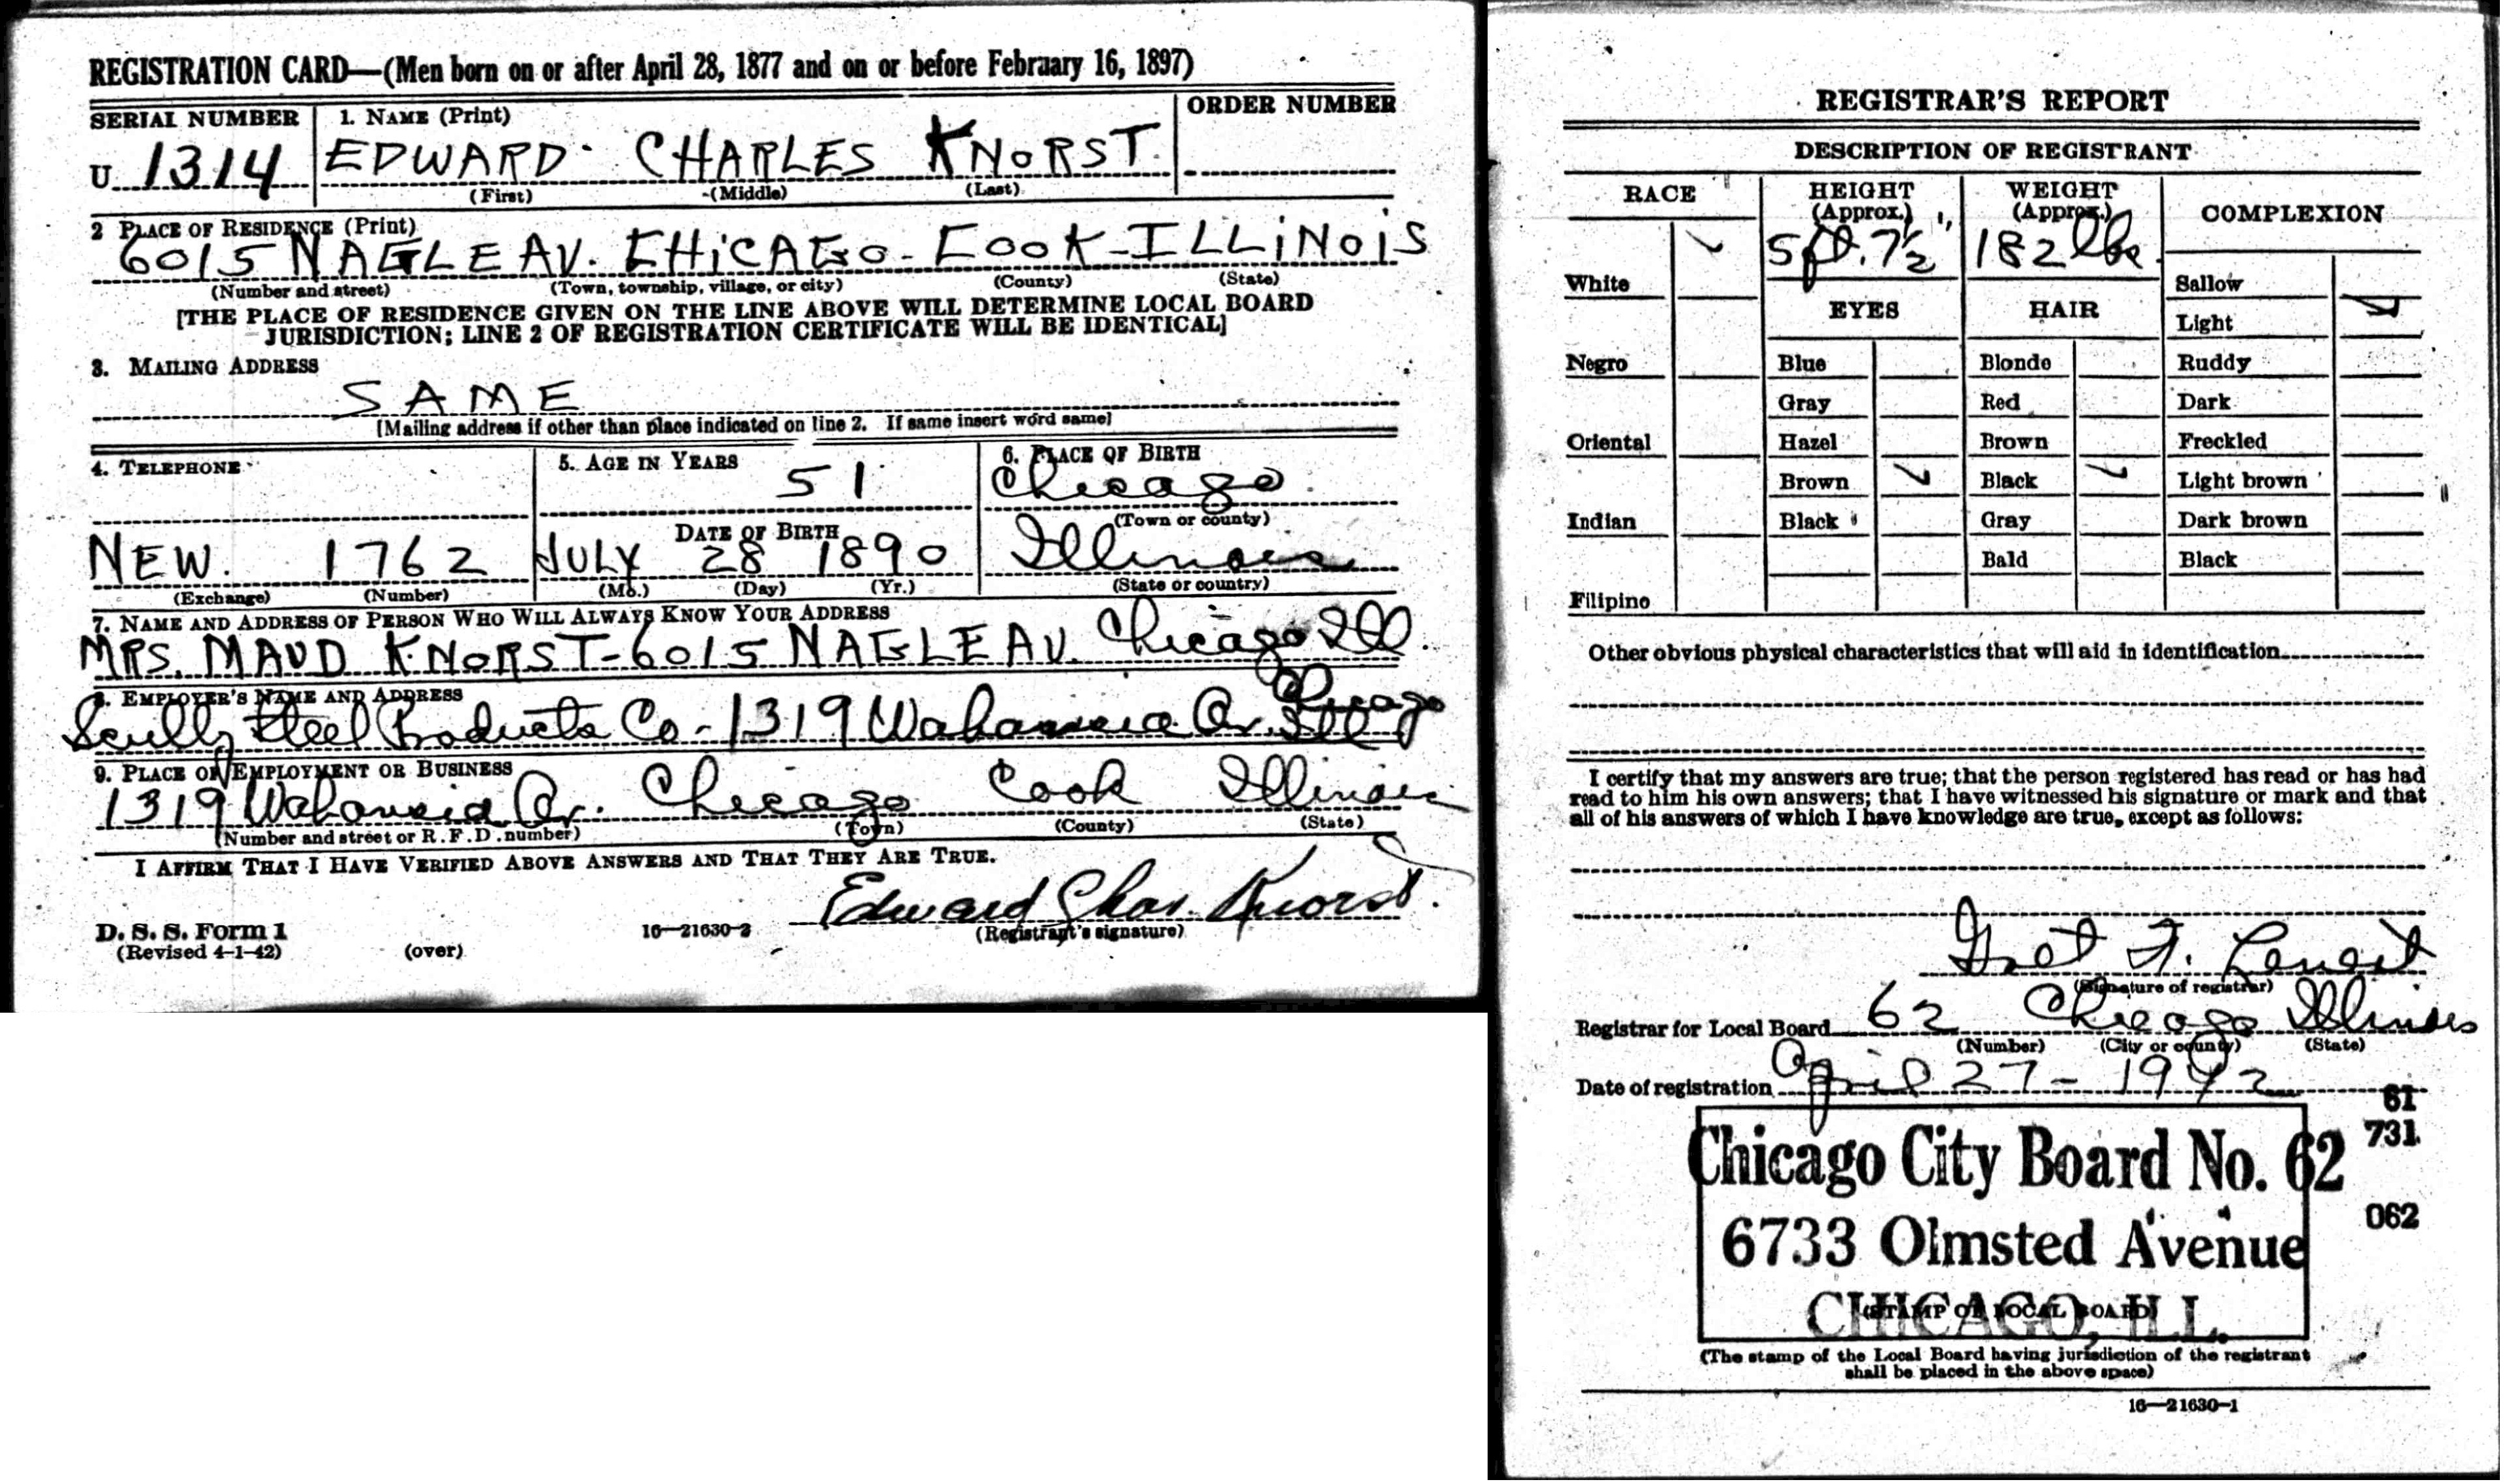 REGISTRATION CARD—(Men born on or after April 28, 1877 and on or before February 16, 1897)
SERIAL NUMBER 1. NAME (Print) ORDER NUMBER
U 1314 EDWARD CHARLES KNORST
(First) (Middle) (Last)
2 PLACE OF RESIDENCE (Print)
6015 NAGLE AV. CHICAGO - COOK - ILLINOIS
(Number and street) (Town, township, village, or city) (County) (State)
[THE PLACE OF RESIDENCE GIVEN ON THE LINE ABOVE WILL DETERMINE LOCAL BOARD
JURISDICTION; LINE 2 OF REGISTRATION CERTIFICATE WILL BE IDENTICAL]
3. MAILING ADDRESS
SAME
[Mailing address if other than place indicated on line 2. If same insert word same]
4. TELEPHONE 5. AGE IN YEARS 6. PLACE OF BIRTH
51 Chicago
(Town or county)
DATE OF BIRTH
NEW. 1762 JULY 28 1890 Illinois
(Exchange) (Number) (Mo.) (Day) (Yr.) (State or country)
7. NAME AND ADDRESS OF PERSON WHO WILL ALWAYS KNOW YOUR ADDRESS
MRS. MAUD KNORST - 6015 NAGLE AV. Chicago Ill.
8. EMPLOYER'S NAME AND ADDRESS
Scully Steel Products Co - 1319 Wabansia Av. Chicago Ill
9. PLACE OF EMPLOYMENT OR BUSINESS
1319 Wabansia Av. Chicago Cook Illinois
(Number and street or R.F.D. number) (Town) (County) (State)
I AFFIRM THAT I HAVE VERIFIED ABOVE ANSWERS AND THAT THEY ARE TRUE.
Edward Chas. Knorst.
D. S. S. Form 1 16—21630-2 (Registrant's signature)
(Revised 4-1-42) (over)
REGISTRAR'S REPORT
DESCRIPTION OF REGISTRANT
RACE HEIGHT (Approx.) WEIGHT (Approx.) COMPLEXION
5 ft. 7½" 182 lbs.
White Sallow
EYES HAIR Light
Negro Blue Blonde Ruddy
Gray Red Dark
Oriental Hazel Brown Freckled
Brown Black Light brown
Indian Black Gray Dark brown
Bald Black
Filipino
Other obvious physical characteristics that will aid in identification
I certify that my answers are true; that the person registered has read or has had
read to him his own answers; that I have witnessed his signature or mark and that
all of his answers of which I have knowledge are true, except as follows:
(Signature of registrar)
Registrar for Local Board 62 Chicago Illinois
(Number) (City or county) (State)
Date of registration April 27 - 1942
61
731
062
Chicago City Board No. 62
6733 Olmsted Avenue
CHICAGO, ILL.
(STAMP OF LOCAL BOARD)
(The stamp of the Local Board having jurisdiction of the registrant
shall be placed in the above space)
16—21630-1